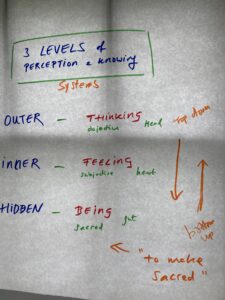 3 LEVELS of
PERCEPTION & KNOWING
Systems
OUTER - THINKING top down
objective Head
INNER - FEELING
subjective heart
HIDDEN - BEING
sacred gut
bottom
up
"to make
Sacred"